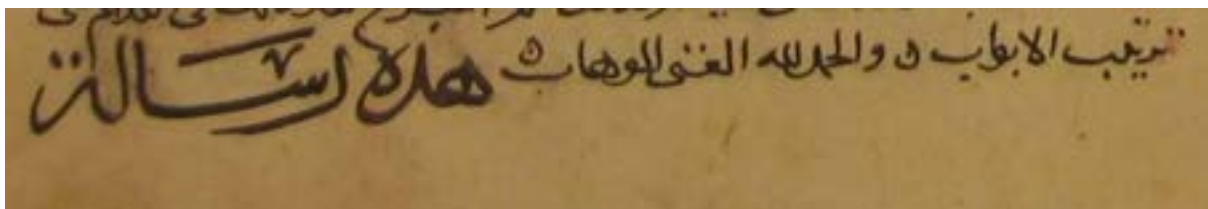 ترتيب الابواب ه والحمد لله الغنى الوهاب ه هذه رسالة